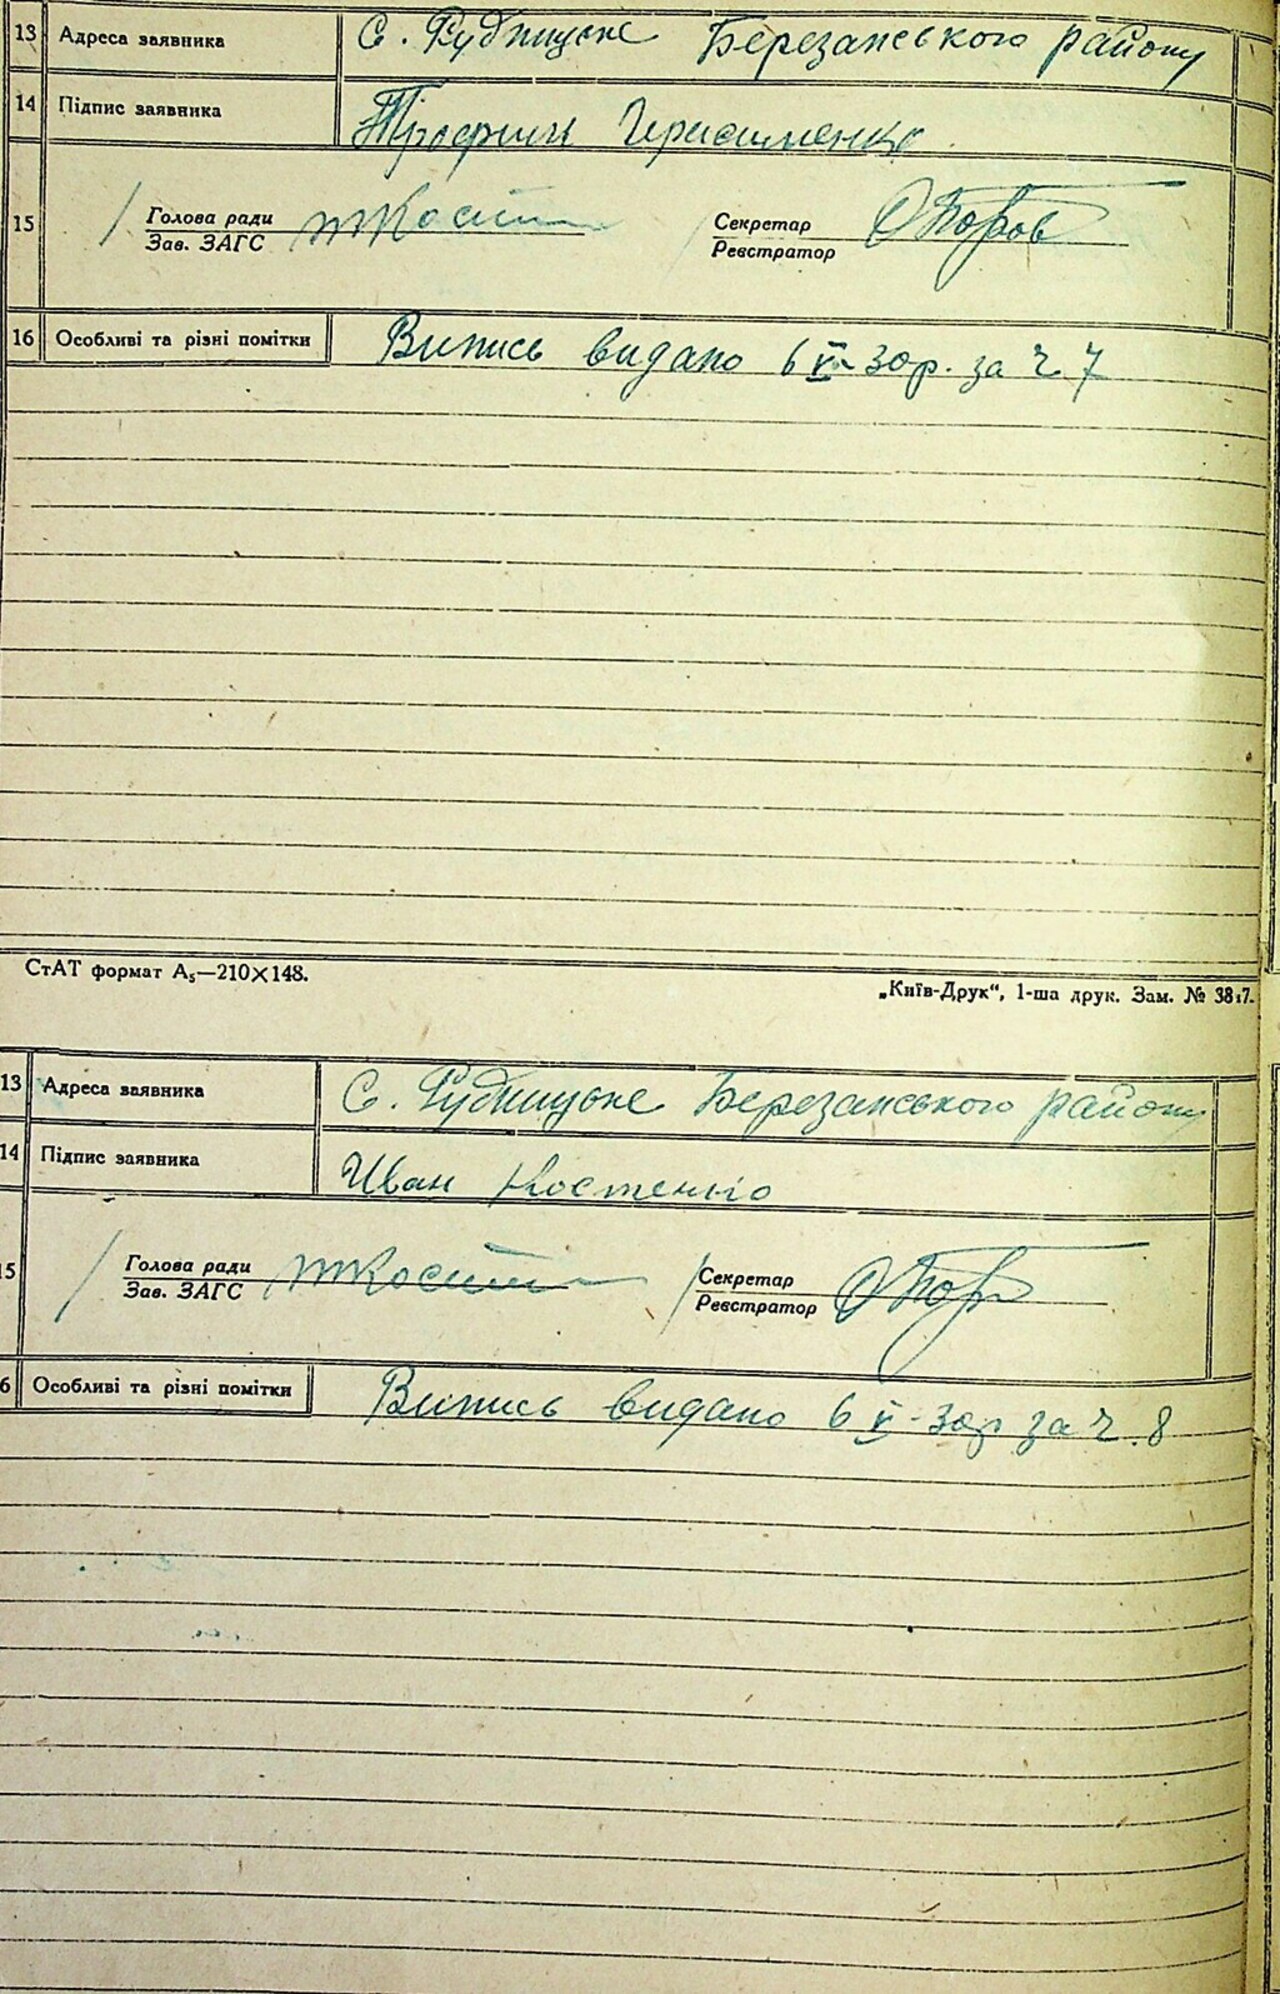 13 Адреса заявника С. Рудницьке Березанського району
14 Підпис заявника Трофим Герасименко
15 Голова ради Секретар
Зав. ЗАГС Реєстратор
16 Особливі та різні помітки Випись видано 6 V 30 р. за ч. 7
СтАТ формат А₅—210×148.
„Київ-Друк“, 1-ша друк. Зам. №
13 Адреса заявника С. Рудницьке Березанського району
14 Підпис заявника Иван Костенко
15 Голова ради Секретар
Зав. ЗАГС Реєстратор
6 Особливі та різні помітки Випись видано 6 V - 30 р за ч. 8